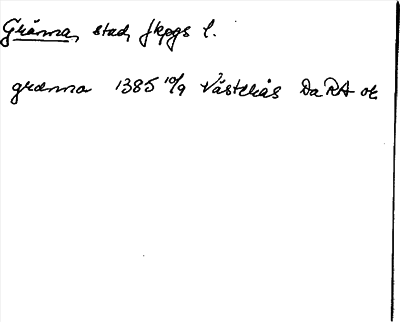 Gränna, stad, Jkpgs l.
grænna 1385 10/9 Västerås Da RA or